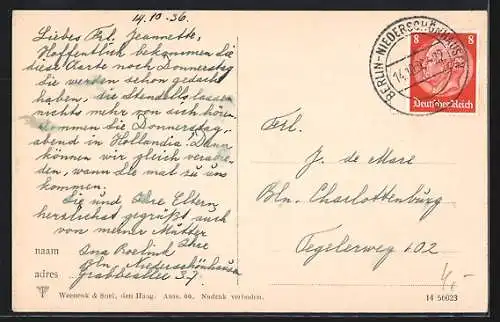 14.10.36.
Liebes Frl. Jeannette,
Hoffentlich bekommen Sie
diese Karte noch Donnerstag
Sie werden schon gedacht
haben, die Stendells lassen
nichts mehr von sich hören
Kommen Sie Donnerstag
abend in Hollandia? Dann
können wir gleich verabre-
den, wann Sie mal zu uns
kommen.
Sie und Ihre Eltern
herzlichst gegrüßt auch
von meiner Mutter
Ihre
naam Ina Roelink
adres Bln. Niederschönhausen
Grabbeallee 37
Weenenk & Snel, den Haag. Auss. 60. Nadruk verboden.
BERLIN-NIEDERSCHÖNHAUSEN
14.10.36
8 8
Deutsches Reich
Frl.
J. de Mare
Bln. Charlottenburg
Tegelerweg 102
4,-
14 56023